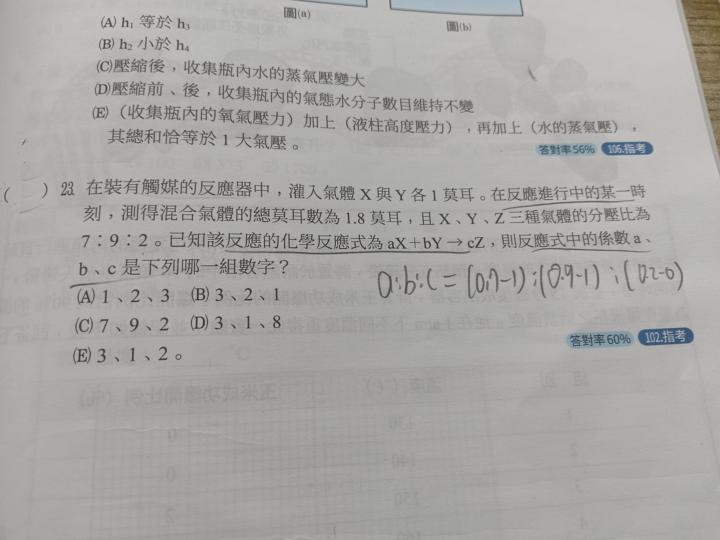 圖(a)
圖(b)
(A) h₁ 等於 h₃
(B) h₂ 小於 h₄
(C)壓縮後，收集瓶內水的蒸氣壓變大
(D)壓縮前、後，收集瓶內的氣態水分子數目維持不變
(E)（收集瓶內的氧氣壓力）加上（液柱高度壓力），再加上（水的蒸氣壓），
其總和恰等於 1 大氣壓。
答對率56% 106.指考
( ) 23. 在裝有觸媒的反應器中，灌入氣體 X 與 Y 各 1 莫耳。在反應進行中的某一時
刻，測得混合氣體的總莫耳數為 1.8 莫耳，且 X、Y、Z 三種氣體的分壓比為
7：9：2。已知該反應的化學反應式為 aX＋bY → cZ，則反應式中的係數 a、
b、c 是下列哪一組數字？
a:b:c = (0.7-1):(0.9-1):(0.2-0)
(A) 1、2、3 (B) 3、2、1
(C) 7、9、2 (D) 3、1、8
(E) 3、1、2。
答對率60% 102.指考